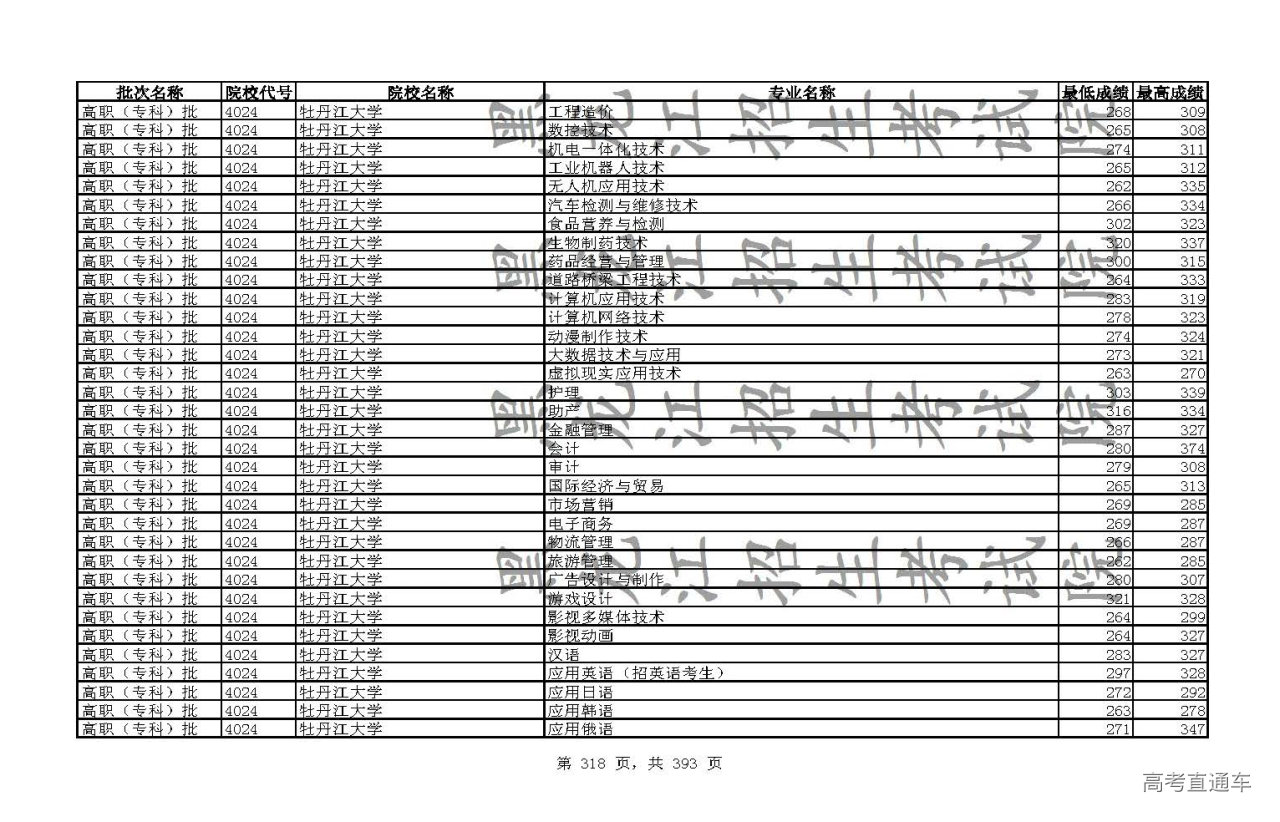 批次名称 院校代号 院校名称 专业名称 最低成绩 最高成绩
高职（专科）批 4024 牡丹江大学 工程造价 268 309
高职（专科）批 4024 牡丹江大学 数控技术 265 308
高职（专科）批 4024 牡丹江大学 机电一体化技术 274 311
高职（专科）批 4024 牡丹江大学 工业机器人技术 265 312
高职（专科）批 4024 牡丹江大学 无人机应用技术 262 335
高职（专科）批 4024 牡丹江大学 汽车检测与维修技术 266 334
高职（专科）批 4024 牡丹江大学 食品营养与检测 302 323
高职（专科）批 4024 牡丹江大学 生物制药技术 320 337
高职（专科）批 4024 牡丹江大学 药品经营与管理 300 315
高职（专科）批 4024 牡丹江大学 道路桥梁工程技术 264 333
高职（专科）批 4024 牡丹江大学 计算机应用技术 283 319
高职（专科）批 4024 牡丹江大学 计算机网络技术 278 323
高职（专科）批 4024 牡丹江大学 动漫制作技术 274 324
高职（专科）批 4024 牡丹江大学 大数据技术与应用 273 321
高职（专科）批 4024 牡丹江大学 虚拟现实应用技术 263 270
高职（专科）批 4024 牡丹江大学 护理 303 339
高职（专科）批 4024 牡丹江大学 助产 316 334
高职（专科）批 4024 牡丹江大学 金融管理 287 327
高职（专科）批 4024 牡丹江大学 会计 280 374
高职（专科）批 4024 牡丹江大学 审计 279 308
高职（专科）批 4024 牡丹江大学 国际经济与贸易 265 313
高职（专科）批 4024 牡丹江大学 市场营销 269 285
高职（专科）批 4024 牡丹江大学 电子商务 269 287
高职（专科）批 4024 牡丹江大学 物流管理 266 287
高职（专科）批 4024 牡丹江大学 旅游管理 262 285
高职（专科）批 4024 牡丹江大学 广告设计与制作 280 307
高职（专科）批 4024 牡丹江大学 游戏设计 321 328
高职（专科）批 4024 牡丹江大学 影视多媒体技术 264 299
高职（专科）批 4024 牡丹江大学 影视动画 264 327
高职（专科）批 4024 牡丹江大学 汉语 283 327
高职（专科）批 4024 牡丹江大学 应用英语（招英语考生） 297 328
高职（专科）批 4024 牡丹江大学 应用日语 272 292
高职（专科）批 4024 牡丹江大学 应用韩语 263 278
高职（专科）批 4024 牡丹江大学 应用俄语 271 347
黑龙江招生考试院
黑龙江招生考试院
黑龙江招生考试院
黑龙江招生考试院
第 318 页，共 393 页
高考直通车